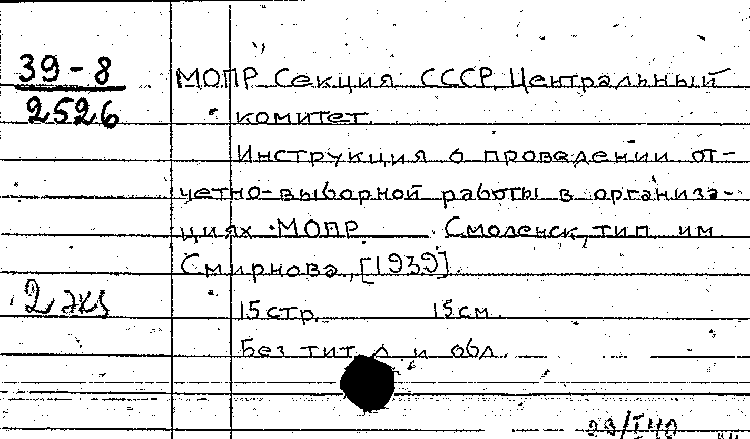 39-8
2526
МОПР Секция СССР. Центральный
комитет.
Инструкция о проведении от-
четно-выборной работы в организа-
циях МОПР. Смоленск, тип им
Смирнова, [1939].
2 экз
15стр. 15см.
Без тит л и обл.